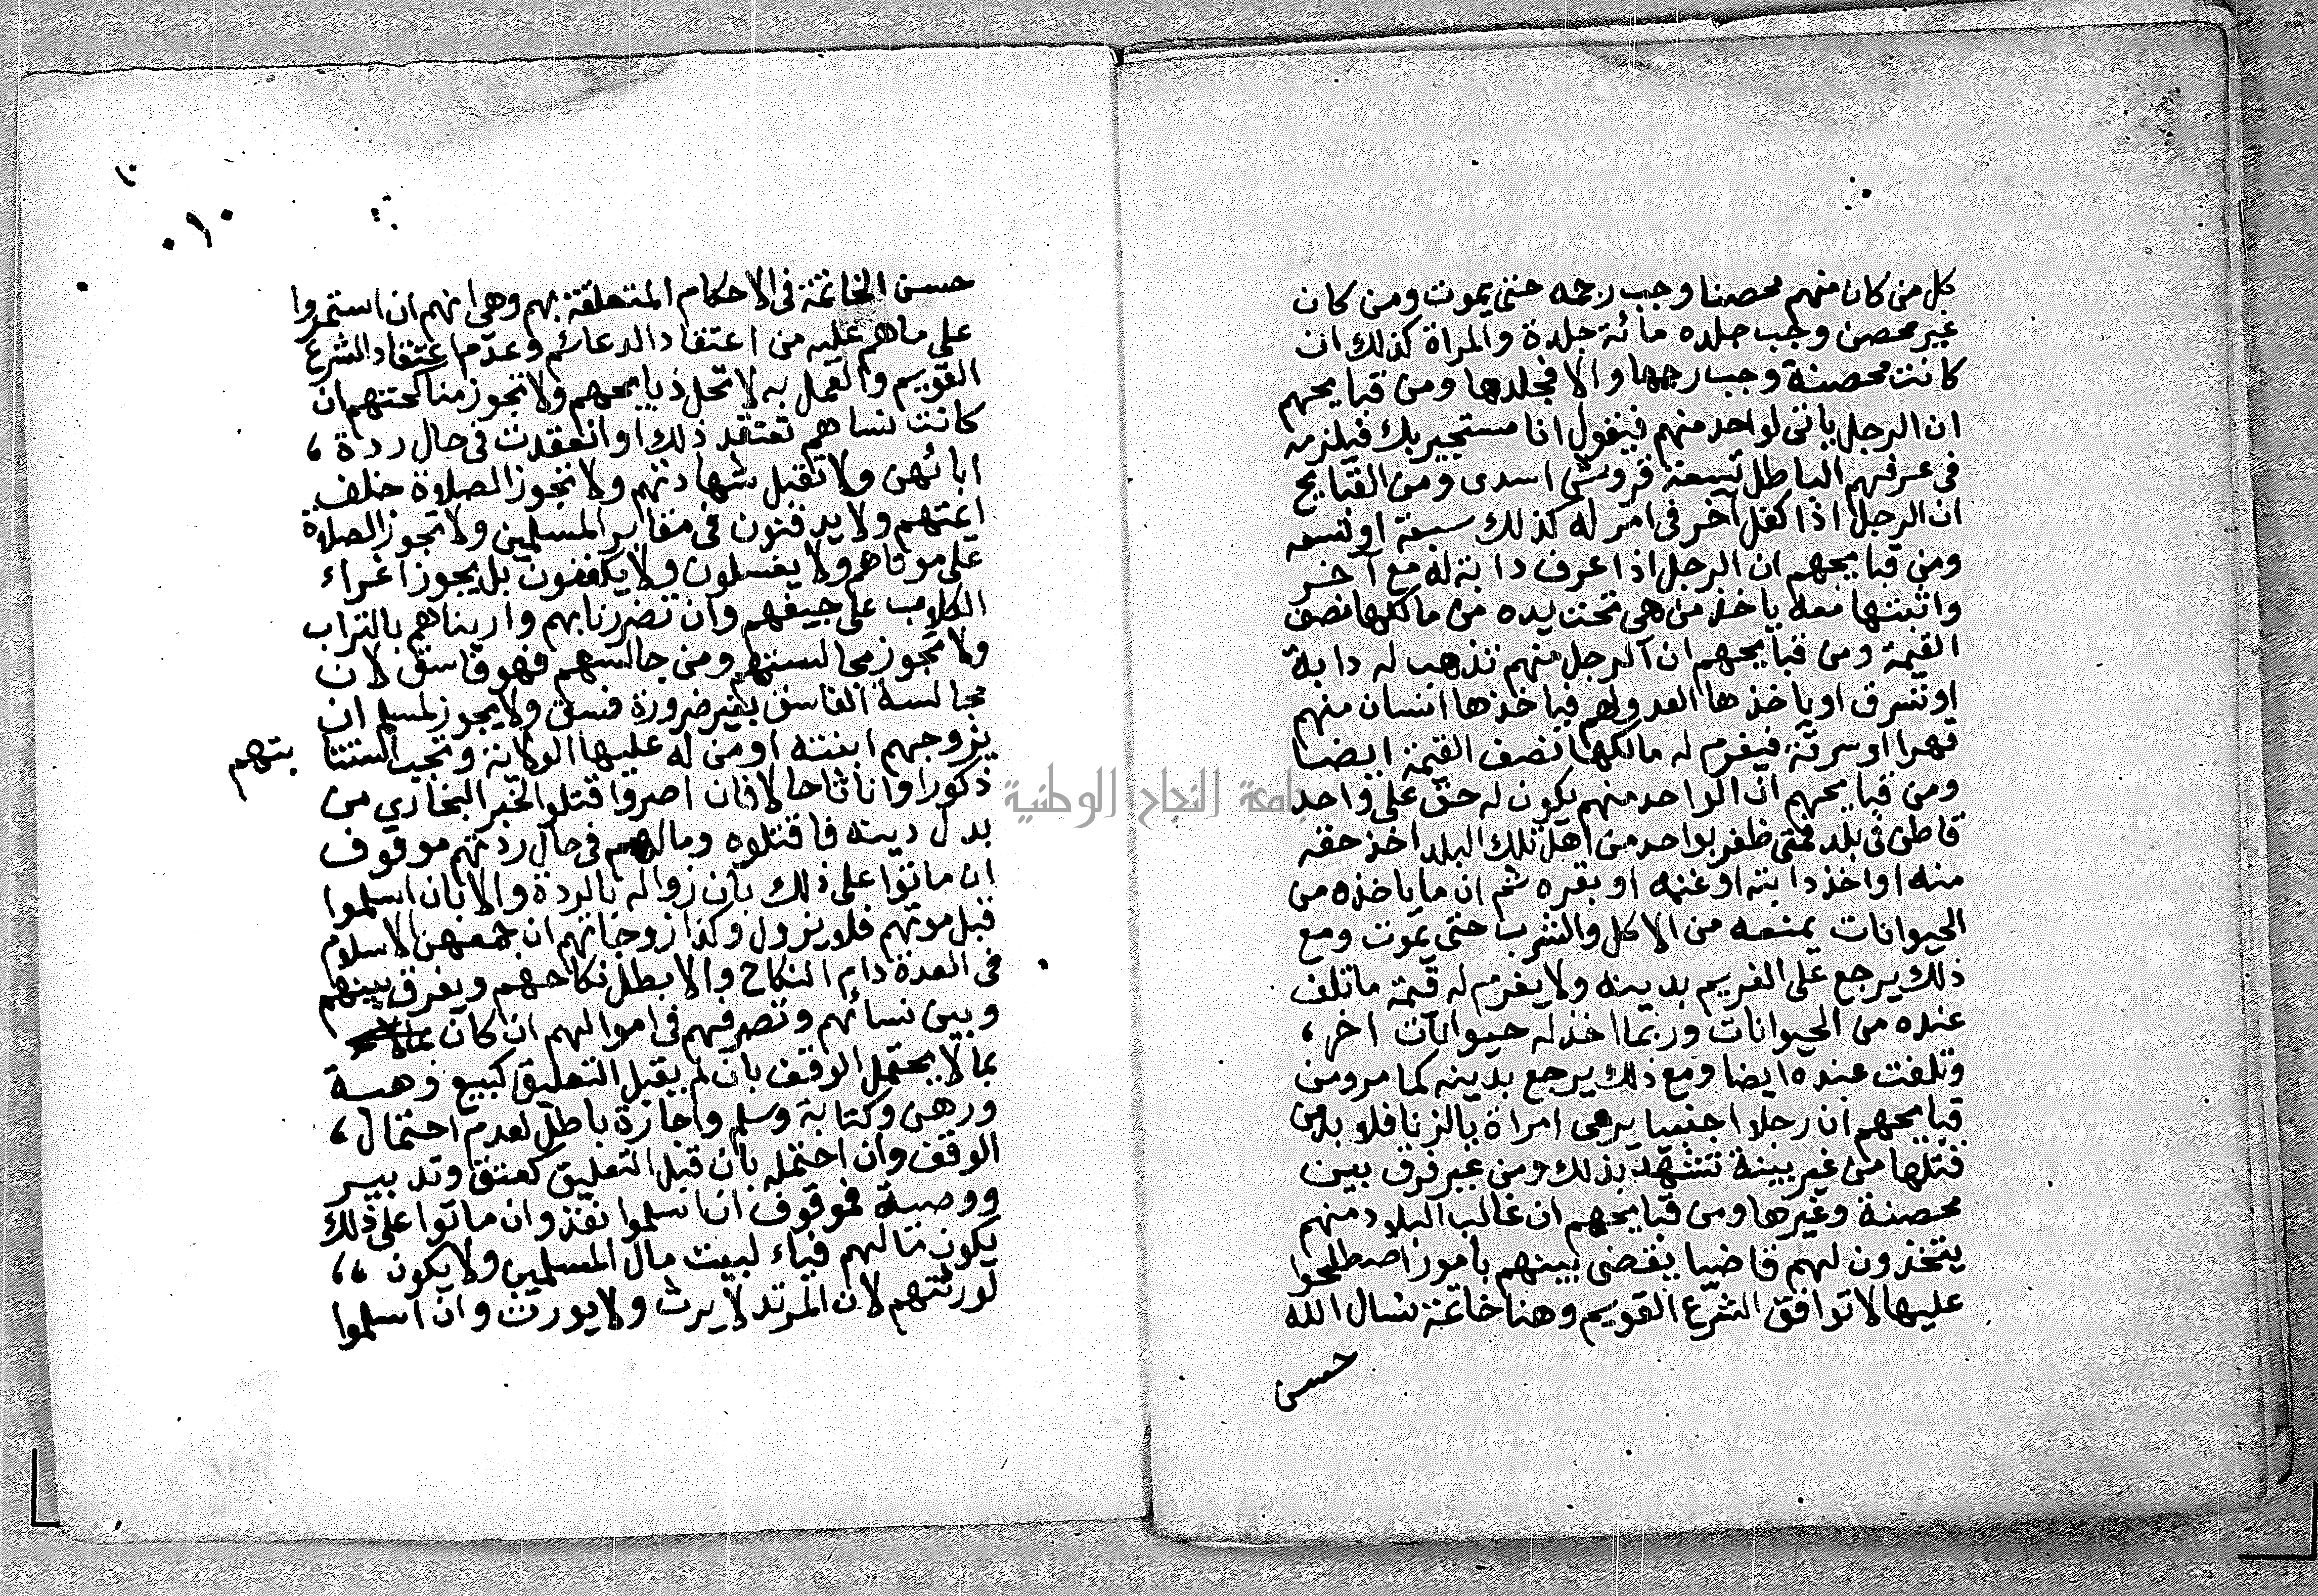 كل من كان منهم محصنا وجب رجمه حتى يموت ومن كان
غير محصن وجب جلده مائة جلدة والمراة كذلك ان
كانت محصنة وجب رجمها والا فجلدها ومن قبايحهم
ان الرجل ياتى لواحد منهم فيقول انا مستجير بك فيلزمه
فى عرفهم الباطل تسعة قروش اسدى ومن القبايح
ان الرجل اذا كفل آخر فى امر له كذلك سبعة او تسعه
ومن قبايحهم ان الرجل اذا عرف دابته له مع آخر
واثبتها معه ياخذ من هى تحت يده من مالكها نصف
القيمة ومن قبايحهم ان الرجل منهم تذهب له دابة
او تسرق او ياخذها العدو لهم فياخذها انسان منهم
قهرا او سرقة فيغرم له مالكها نصف القيمة ايضا
ومن قبايحهم ان الواحد منهم يكون له حق على واحد
قاطن فى بلد فمتى ظفر بواحد من اهل تلك البلد اخذ حقه
منه او اخذ دابته او غنمه او بقره ثم ان ما ياخذه من
الحيوانات يمنعه من الاكل والشرب حتى يموت ومع
ذلك يرجع على الغريم بدينه ولا يغرم له قيمة ما تلف
عنده من الحيوانات وربما اخذ له حيوانات اخر،
وتلفت عنده ايضا ومع ذلك يرجع بدينه كما مر ومن
قبايحهم ان رجلا اجنبيا يرمى امراة بالزنا فلا بد من
قتلها من غير بينة تشهد بذلك ومن غير فرق بين
محصنة وغيرها ومن قبايحهم ان غالب البلاد منهم
يتخذون لهم قاضيا يقضى بينهم بامور اصطلحوا
عليها لا توافق الشرع القويم وهنا خاتمة نسال الله
حسن
١٠
٠١٠
حسن الخاتمة فى الاحكام المتعلقة بهم وهى انهم ان استمروا
على ما هم عليه من اعتقاد الدعائم وعدم اعتقاد الشرع
القويم والعمل به لا تحل ذبايحهم ولا تجوز مناكحتهم ان
كانت نساهم تعتقد ذلك او انعقدت فى حال ردة،
ابائهن ولا تقبل شهادتهم ولا تجوز الصلاة خلف
ائمتهم ولا يدفنون فى مقابر المسلمين ولا تجوز الصلاة
على موتاهم ولا يغسلون ولا يكفنون بل يجوز اغراء
الكلاب على جيفهم وان تضررنا بهم واريناهم بالتراب
ولا تجوز مجالستهم ومن جالسهم فهو فاسق لان
مجالسة الفاسق بغير ضرورة فسق ولا يجوز لمسلم ان
يزوجهم ابنته او من له عليها الولاية وتجب استتا بتهم
ذكورا واناثا حالا فان اصروا قتلوا لخبر البخاري من
بدل دينه فاقتلوه ومالهم فى حال ردتهم موقوف
ان ماتوا على ذلك بان زواله بالردة والا بان اسلموا
قبل موتهم فلا يزول وكذا زوجاتهم ان جمعهن الاسلام
فى العدة دام النكاح والا بطل نكاحهم ويفرق بينهم
وبين نسائهم وتصرفهم فى اموالهم ان كان
بما لا يحتمل الوقف بان لم يقبل التعليق كبيع وهبة
ورهن وكتابة وسلم واجازة باطل لعدم احتمال،
الوقف وان احتمله بان قبل التعليق كعتق وتدبير
ووصية فموقوف ان اسلموا نفذ وان ماتوا على ذلك
يكون مالهم فياء لبيت مال المسلمين ولا يكون،،
لورثتهم لان المرتد لا يرث ولا يورث وان اسلموا
جامعة النجاح الوطنية